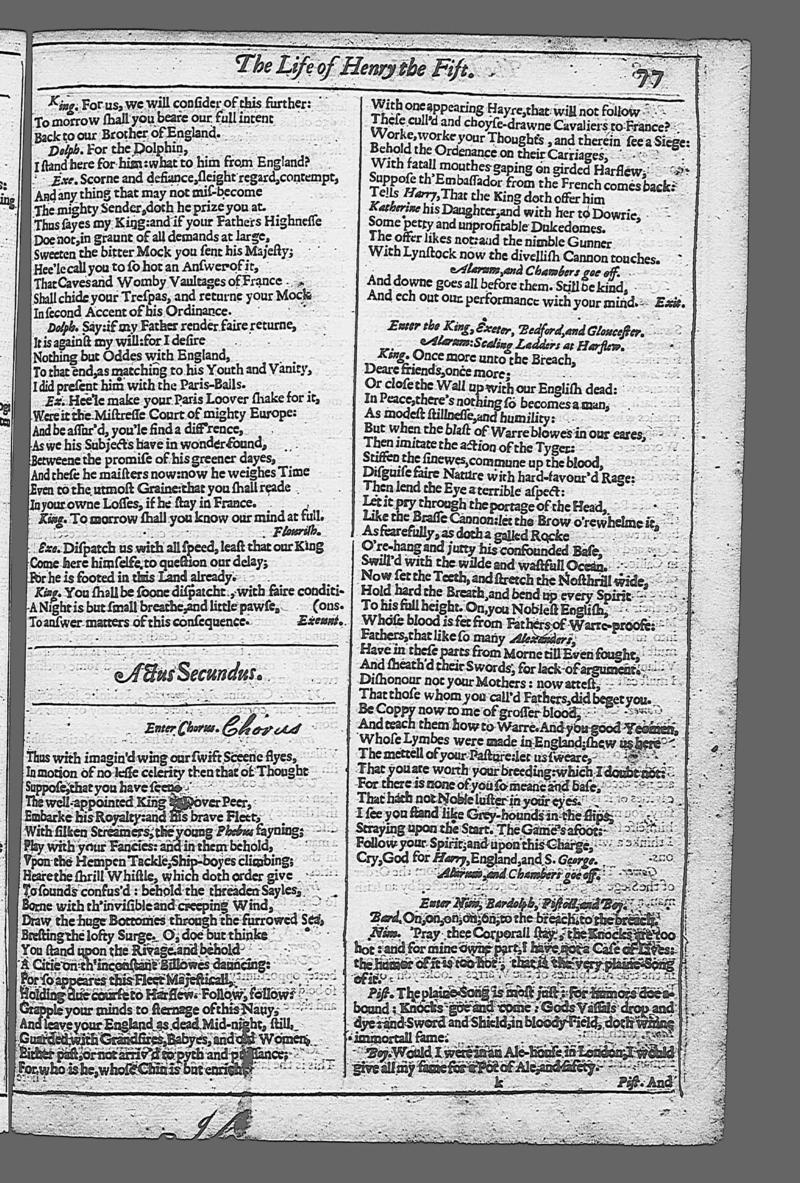 The Life of Henry the Fift.
77
King. For us, we will conſider of this further:
To morrow ſhall you beare our full intent
Back to our Brother of England.
Dolph. For the Dolphin,
I ſtand here for him: what to him from England?
Exe. Scorne and defiance, ſleight regard, contempt,
And any thing that may not miſ-become
The mighty Sender, doth he prize you at.
Thus ſayes my King: and if your Fathers Highneſſe
Doe not, in graunt of all demands at large,
Sweeten the bitter Mock you ſent his Majeſty;
Hee'le call you to ſo hot an Anſwer of it,
That Caves and Womby Vaultages of France
Shall chide your Treſpas, and returne your Mock
In ſecond Accent of his Ordinance.
Dolph. Say: if my Father render faire returne,
It is againſt my will: for I deſire
Nothing but Oddes with England,
To that end, as matching to his Youth and Vanity,
I did preſent him with the Paris-Balls.
Ex. Hee'le make your Paris Loover ſhake for it,
Were it the Miſtreſſe Court of mighty Europe:
And be aſſur'd, you'le find a diff'rence,
As we his Subjects have in wonder found,
Betweene the promiſe of his greener dayes,
And theſe he maiſters now: now he weighs Time
Even to the utmoſt Graine: that you ſhall reade
In your owne Loſſes, if he ſtay in France.
King. To morrow ſhall you know our mind at full.
Flouriſh.
Exe. Diſpatch us with all ſpeed, leaſt that our King
Come here himſelfe, to queſtion our delay;
For he is footed in this Land already.
King. You ſhall be ſoone diſpatcht, with faire conditi-
A Night is but ſmall breathe, and little pawſe, (ons.
To anſwer matters of this conſequence. Exeunt.
Actus Secundus.
Enter Chorus. Chorus
Thus with imagin'd wing our ſwift Sceene flyes,
In motion of no leſſe celerity then that of Thought
Suppoſe, that you have ſeene
The well-appointed King Dover Peer,
Embarke his Royalty: and his brave Fleet,
With ſilken Streamers, the young Phebus fayning;
Play with your Fancies: and in them behold,
Vpon the Hempen Tackle, Ship-boyes climbing;
Heare the ſhrill Whiſtle, which doth order give
To ſounds confus'd: behold the threaden Sayles,
Borne with th'inviſible and creeping Wind,
Draw the huge Bottomes through the furrowed Sea,
Breſting the lofty Surge. O, doe but thinke
You ſtand upon the Rivage, and behold
A Citie on th'inconſtant Billowes dauncing:
For ſo appeares this Fleet Majeſticall,
Holding due courſe to Harflew. Follow, follow:
Grapple your minds to ſternage of this Navy,
And leave your England as dead Mid-night, ſtill,
Guarded with Grandſires, Babyes, and old Women,
Either paſt, or not arriv'd to pyth and
For who is he, whoſe Chin is but enrich
With one appearing Hayre, that will not follow
Theſe cull'd and choyſe-drawne Cavaliers to France?
Worke, worke your Thoughts, and therein ſee a Siege:
Behold the Ordenance on their Carriages,
With fatall mouthes gaping on girded Harflew,
Suppoſe th'Embaſſador from the French comes back:
Tells Harry, That the King doth offer him
Katherine his Daughter, and with her to Dowrie,
Some petty and unprofitable Dukedomes.
The offer likes not: and the nimble Gunner
With Lynſtock now the divelliſh Cannon touches.
Alarum, and Chambers goe off.
And downe goes all before them. Still be kind,
And ech out our performance with your mind. Exit.
Enter the King, Exeter, Bedford, and Glouceſter.
Alarum: Scaling Ladders at Harflew.
King. Once more unto the Breach,
Deare friends, once more;
Or cloſe the Wall up with our Engliſh dead:
In Peace, there's nothing ſo becomes a man,
As modeſt ſtillneſſe, and humility:
But when the blaſt of Warre blowes in our eares,
Then imitate the action of the Tyger:
Stiffen the ſinewes, commune up the blood,
Diſguiſe faire Nature with hard-favour'd Rage:
Then lend the Eye a terrible aſpect:
Let it pry through the portage of the Head,
Like the Braſſe Cannon: let the Brow o'rewhelme it,
As fearefully, as doth a galled Rocke
O're-hang and jutty his confounded Baſe,
Swill'd with the wilde and waſtfull Ocean.
Now ſet the Teeth, and ſtretch the Noſthrill wide,
Hold hard the Breath, and bend up every Spirit
To his full height. On, you Nobleſt Engliſh,
Whoſe blood is fet from Fathers of Warre-proofe:
Fathers, that like ſo many Alexanders,
Have in theſe parts from Morne till Even fought,
And ſheath'd their Swords, for lack of argument.
Diſhonour not your Mothers: now atteſt,
That thoſe whom you call'd Fathers, did beget you.
Be Coppy now to me of groſſer blood,
And teach them how to Warre. And you good Yeomen,
Whoſe Lymbes were made in England; ſhew us here
The mettell of your Paſture: let us ſweare,
That you are worth your breeding: which I doubt not:
For there is none of you ſo meane and baſe,
That hath not Noble luſter in your eyes.
I ſee you ſtand like Grey-hounds in the ſlips,
Straying upon the Start. The Game's afoot:
Follow your Spirit; and upon this Charge,
Cry, God for Harry, England, and S. George.
Alarum, and Chambers goe off.
Enter Nim, Bardolph, Piſtoll, and Boy.
Bard. On, on, on, on, on, to the breach, to the breach.
Nim. 'Pray thee Corporall ſtay, the Knocks are too
hot: and for mine owne part, I have not a Caſe of Lives:
the humor of it is too hot, that is the very plaine-Song
of it.
Piſt. The plaine-Song is moſt juſt; for humors doe a-
bound: Knocks goe and come: Gods Vaſſals drop and
dye: and Sword and Shield, in bloody Field, doth winne
immortall fame.
Boy. Would I were in an Ale-houſe in London, I would
give all my fame for a Pot of Ale, and ſafety.
k
Piſt. And